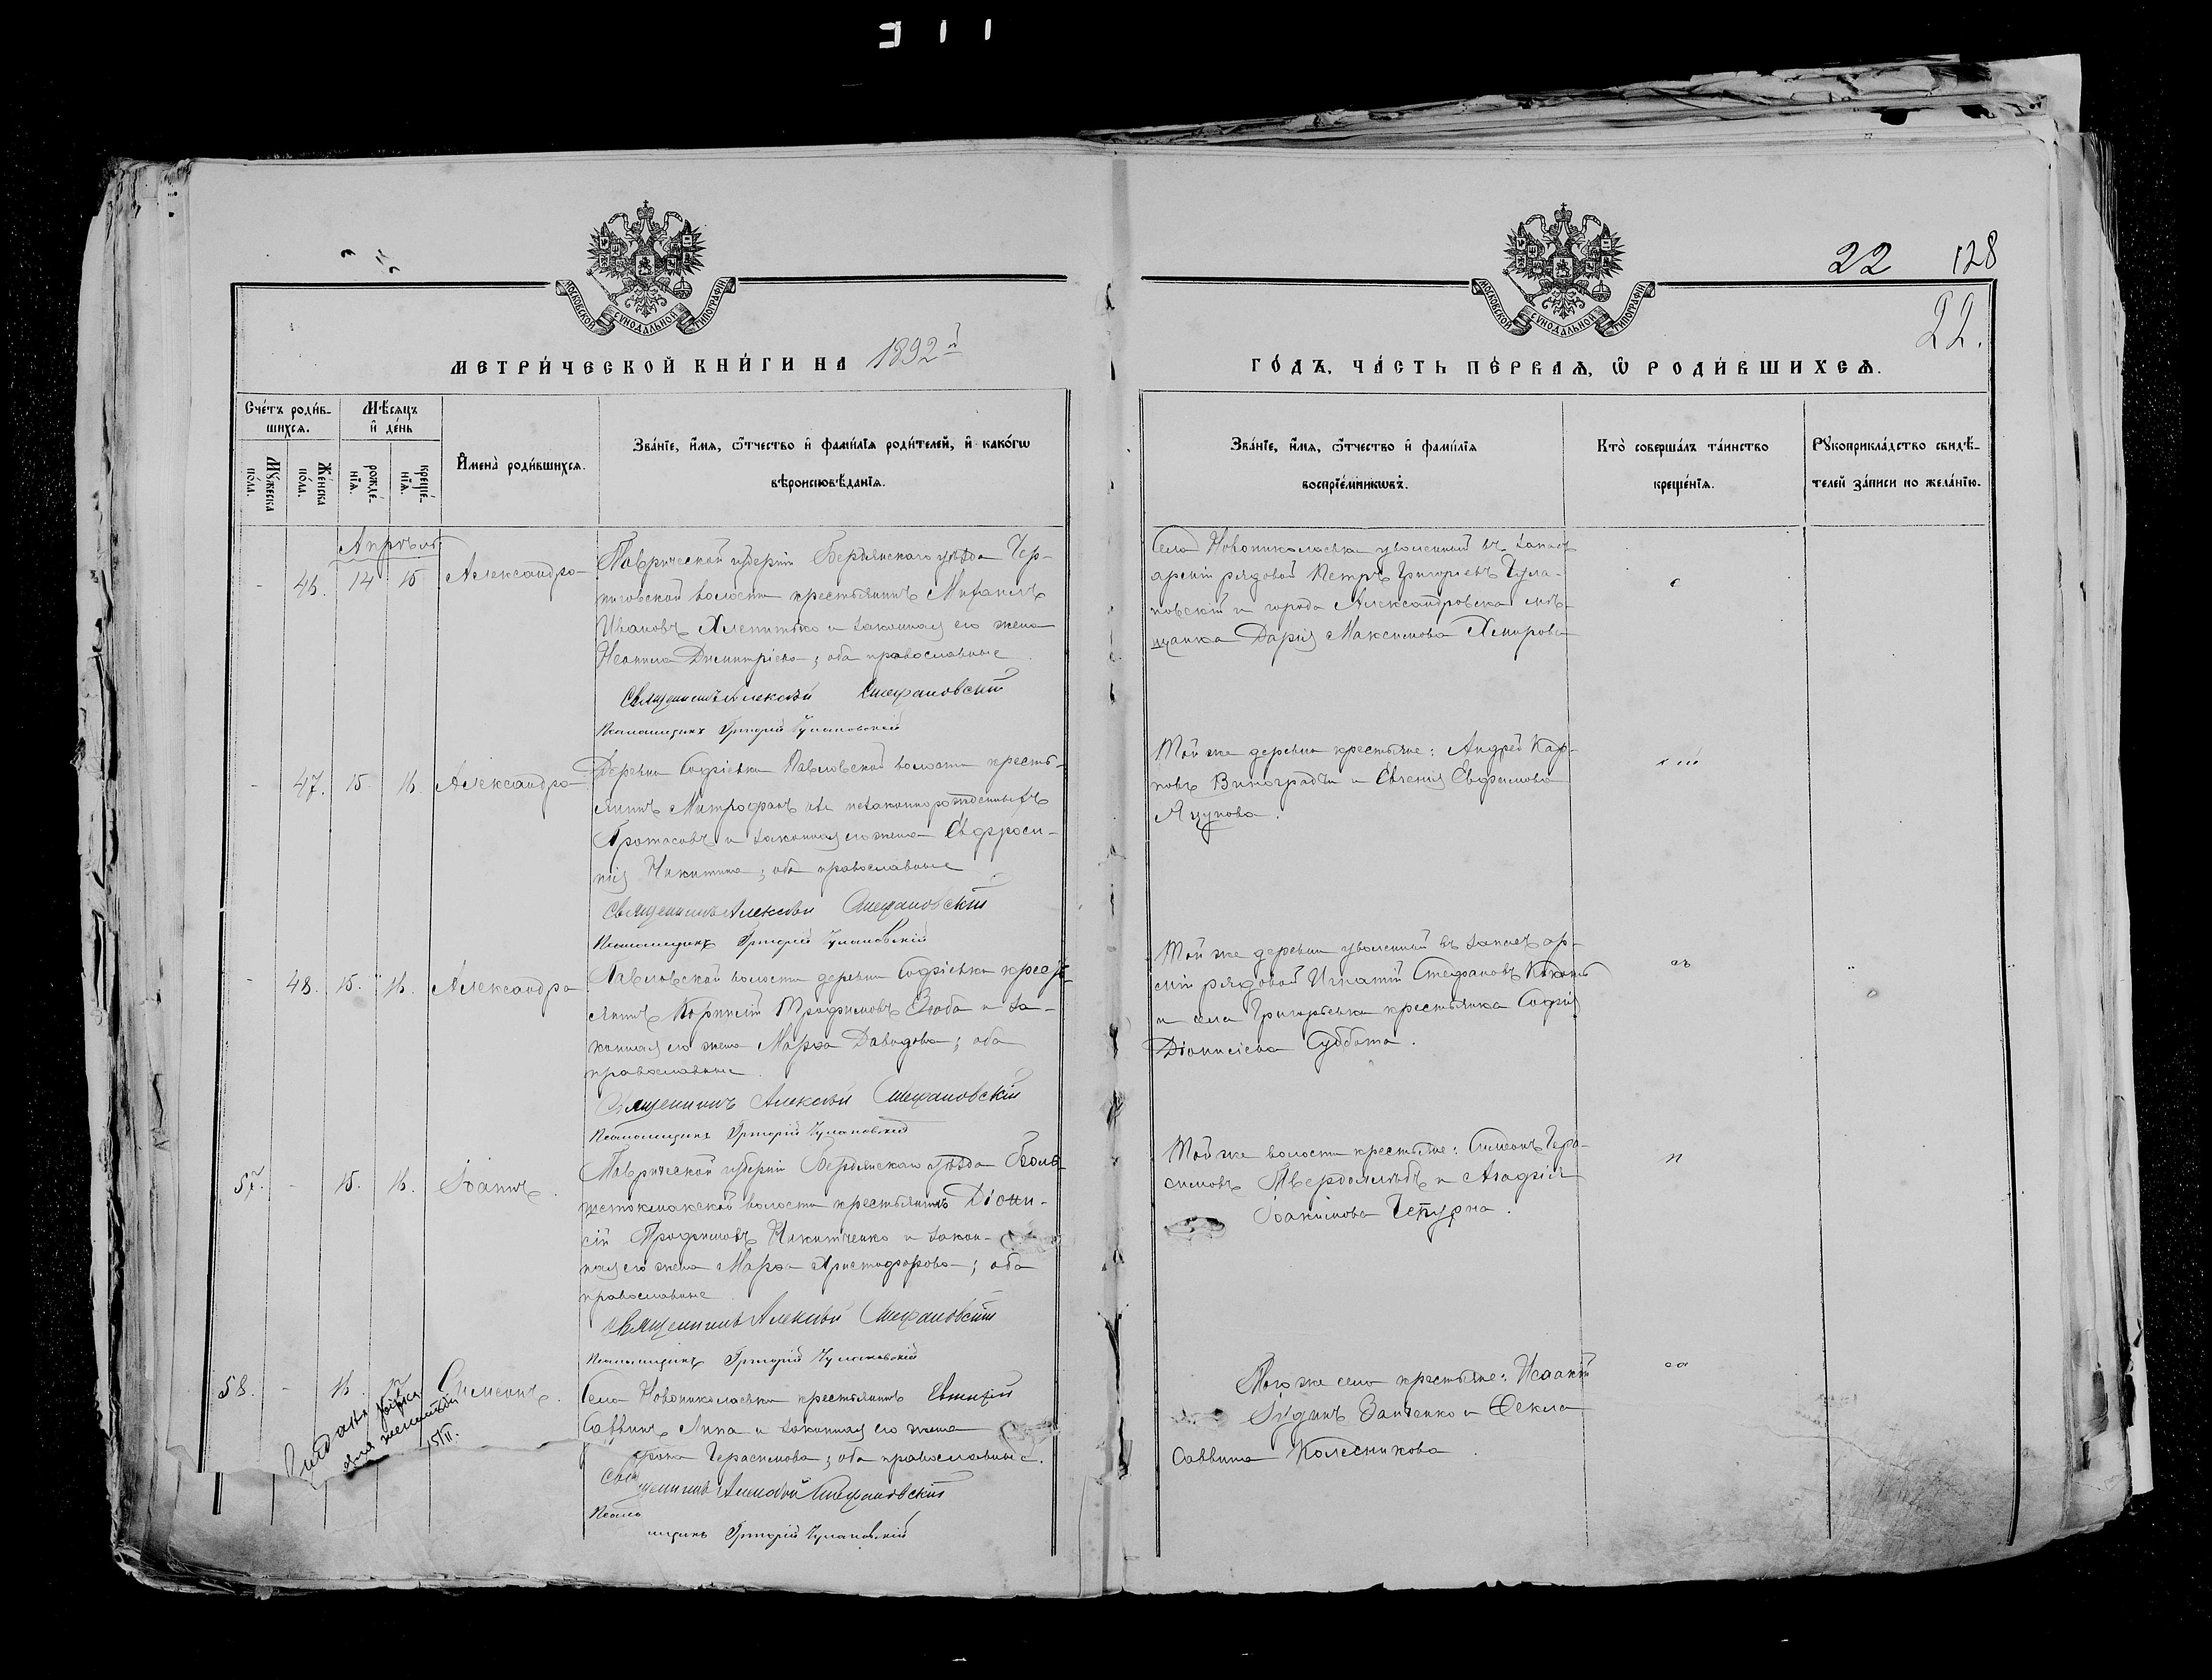 311
22 128
22.
МОСКОВСКОЙ СѴНОДАЛЬНОЙ ТИПОГРАФІИ
МОСКОВСКОЙ СѴНОДАЛЬНОЙ ТИПОГРАФІИ
МЕТРИ́ЧЕСКОЙ КНИ́ГИ НА 1892й
ГО́ДЪ, ЧА́СТЬ ПЕ́РВАѦ, Ѡ РОДИ́ВШИХСѦ.
Сче́тъ роди́в-
шихсѧ.
Мѣ́сѧцъ
и҆ де́нь
Мꙋ́жеска
по́ла.
Же́нска
по́ла.
рожде́-
нїѧ.
креще́-
нїѧ.
И҆мена̀ роди́вшихсѧ.
Зва́нїе, и҆́мѧ, ѻ҆́тчество и҆ фами́лїѧ роди́телей, и҆ како́гѡ
вѣроисповѣ́данїѧ.
Зва́нїе, и҆́мѧ, ѻ҆́тчество и҆ фами́лїѧ
воспрїе́мникѡвъ.
Кто̀ соверша́лъ та́инство
креще́нїѧ.
Рꙋкоприкла́дство свидѣ́-
телей за́писи по жела́нїю.
Апрѣль
- 46. 14 15 Александра
Таврической губерніи Бердянскаго уѣзда Чер-
ниговской волости крестьянинъ Михаилъ
Ивановъ и законная его жена
Неонила Димитріева; оба православные
Священникъ Алексѣй Стефановскій
Псаломщикъ Григорій
Села Новониколаевки уволенный въ запасъ
арміи рядовой Петръ Григорьевъ
и города Александровска мѣ-
щанка Дарія Максимова
- 47. 15. 16. Александра
Деревни Софіевки Павловской волости кресть-
янинъ Митрофанъ изъ незаконнорожденныхъ
Протасовъ и законная его жена Евфроси-
нія Никитина; оба православные
Священникъ Алексѣй Стефановскій
Псаломщикъ Григорій
Той же деревни крестьяне: Андрей Кар-
повъ и Евгенія Евфимова
Яцунова.
- 48. 15. 16. Александра
Павловской волости деревни Софіевки крест-
янинъ Корнилій Трофимовъ и за-
конная его жена Марѳа Давидова; оба
православные.
Священникъ Алексѣй Стефановскій
Псаломщикъ Григорій
Той же деревни уволенный въ запасъ ар-
міи рядовой Игнатій Стефановъ
и села Григорьевки крестьянка Софія
Діонисіева Суббота.
57. - 15. 16. Іоаннъ.
Таврической губерніи Бердянскаго уѣзда Боль-
шетокмакской волости крестьянинъ Діони-
сій Трофимовъ Никитченко и закон-
ная его жена Марѳа Христофорова; оба
православные
Священникъ Алексѣй Стефановскій
Псаломщикъ Григорій
Той же волости крестьяне: Симеонъ Гера-
симовъ Твердохлѣбъ и Агафія
Іоакимова Чепурна.
58. - 16. 17 Симеонъ.
Села Новониколаевки крестьянинъ Евтихій
Саввинъ Липа и законная его жена
Герасимова; оба православные.
Священникъ Алексѣй Стефановскій
Псаломщикъ Григорій
Того же села крестьяне: Исаакій
Заиченко и Ѳекла
Саввина Колесникова.